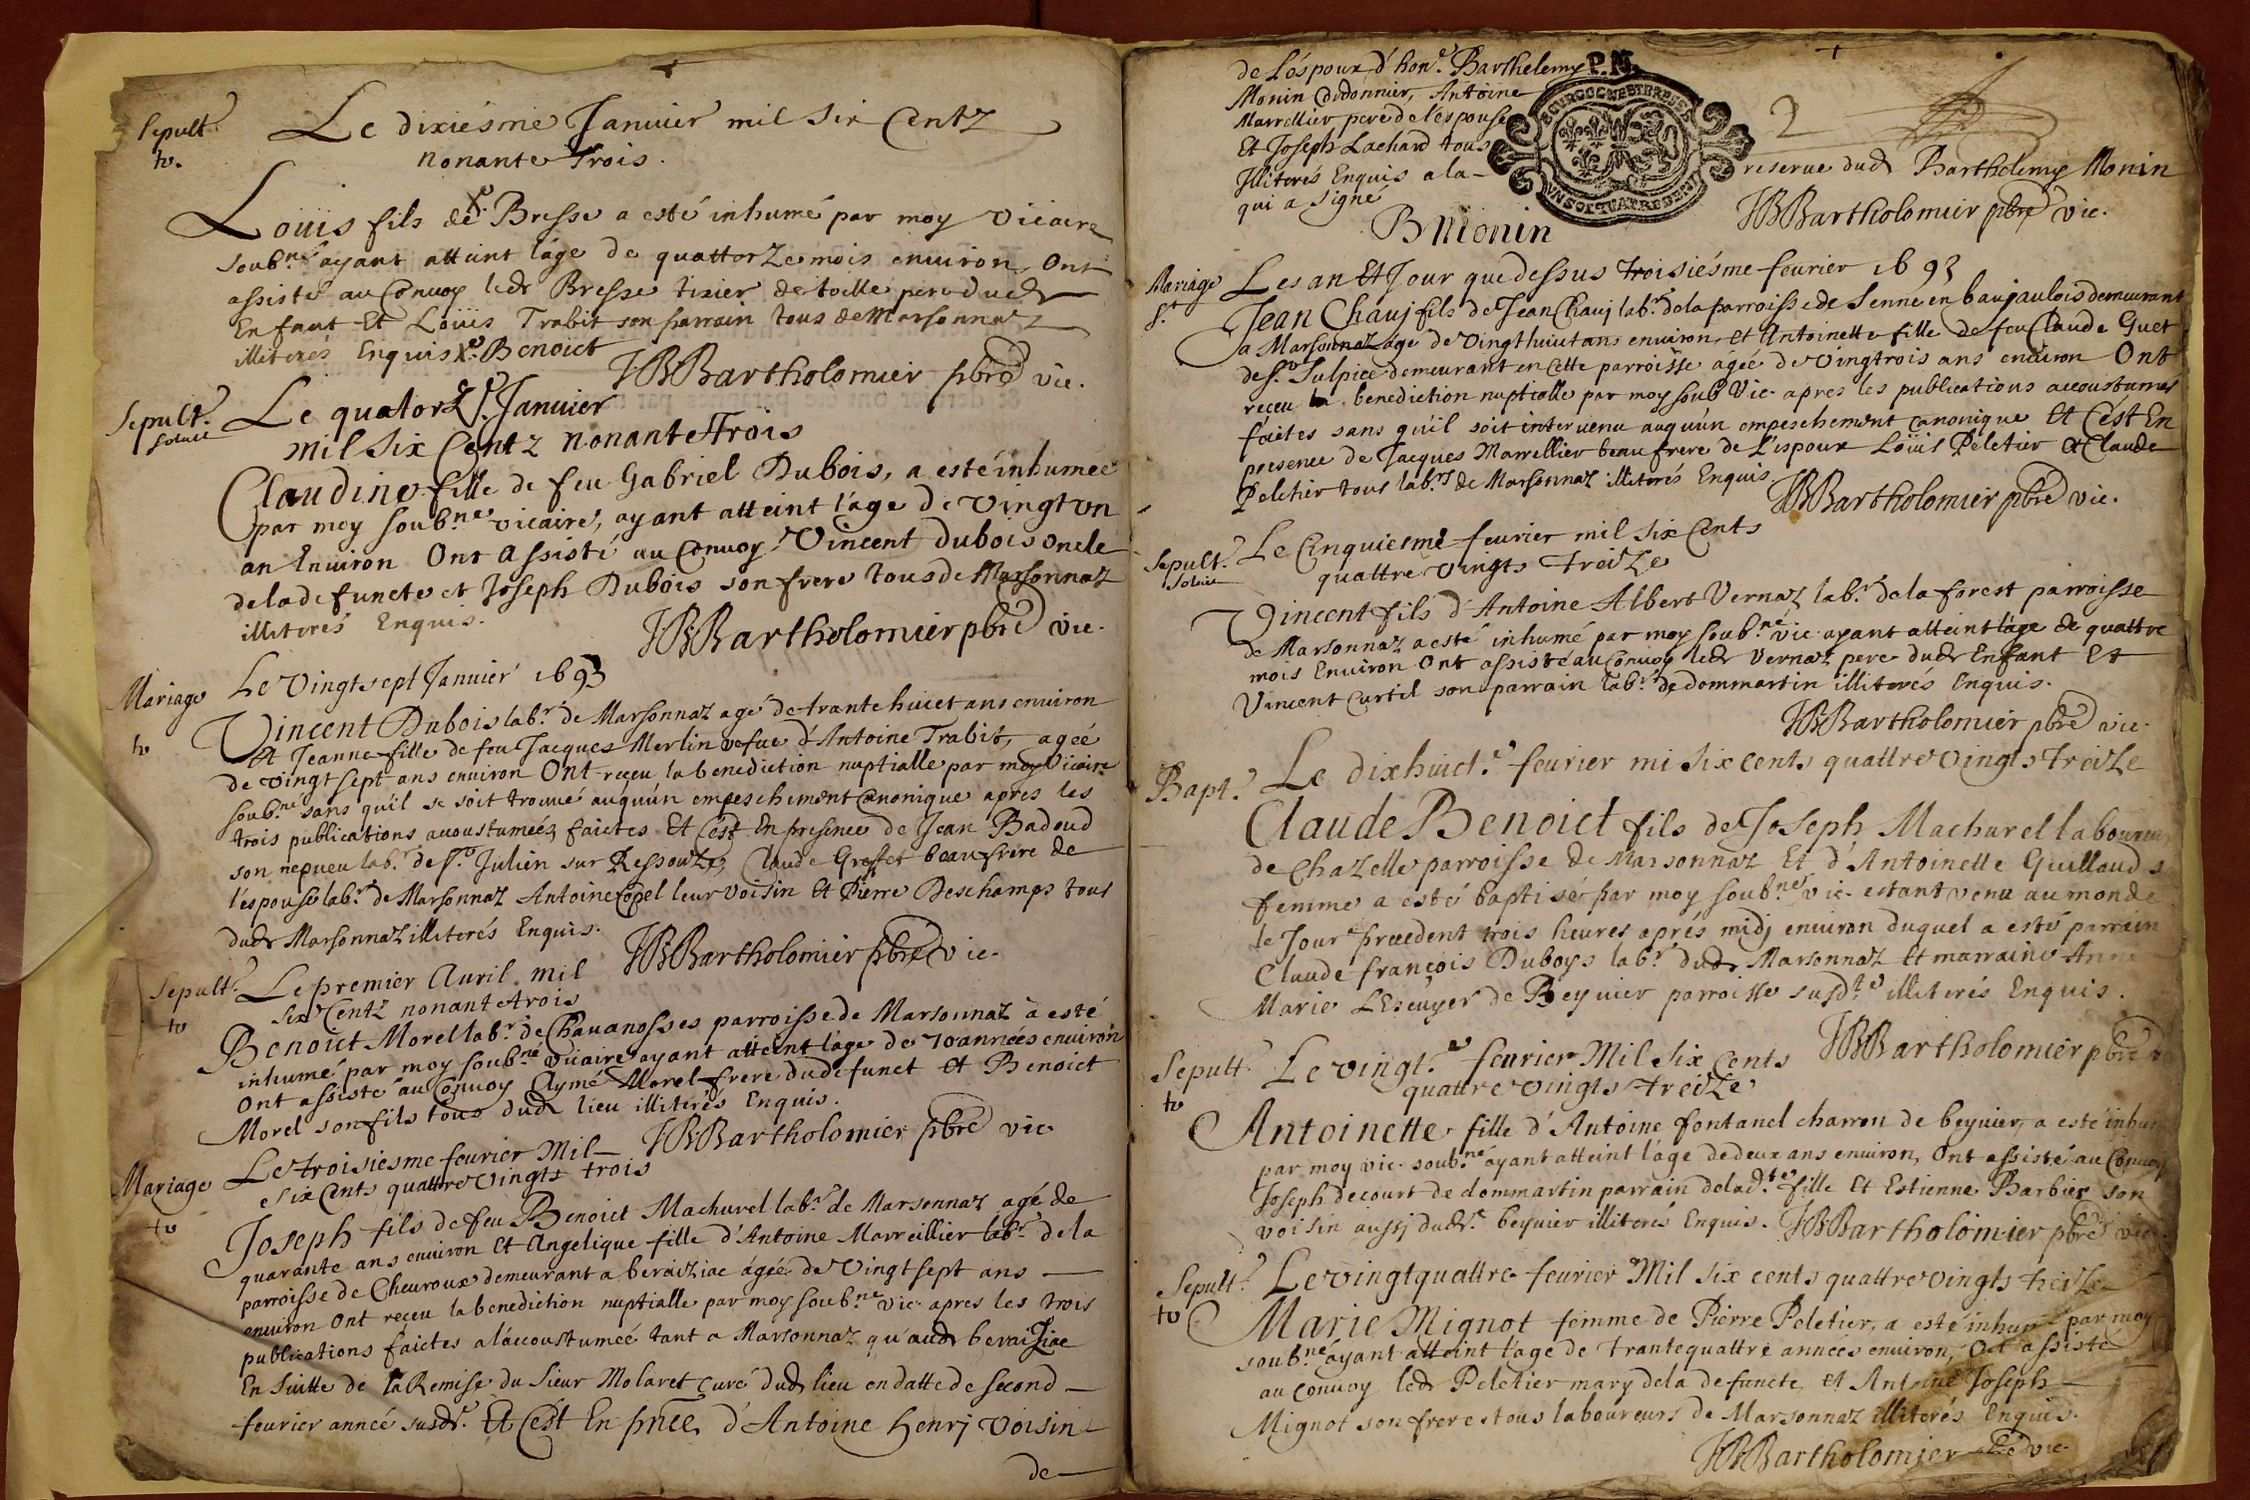 Sepult.e
to.
Le dixiésme Januier mil six Centz
nonante trois.
Loüis fils de X.e Bresse a esté inhumé par moy Vicaire
soub.né ayant atteint l'âge de quattorze mois enuiron, Ont
assisté au Conuoy ledt Bresse tixier de toille pere dudt
Enfant Et Loüis Trabit son parrain tous de Marsonnaz
illiterés Enquis X.e Benoict
JBBartholomier pbre vic.
Sepult.e
soluit
Le quatorz.e Januier
mil six Centz nonante Trois
Claudine fille de feu Gabriel Dubois, a esté inhumée
par moy soub.né vicaire, ayant atteint l'age de vingt un
an Enuiron Ont assisté au Conuoy Vincent dubois oncle
de la defuncte et Joseph Dubois son frere tous de Marsonnaz
illiterés Enquis.
JBBartholomier pbre vic.
Mariage
to
Le Vingt sept Januier 1693
Vincent Dubois lab.r de Marsonnaz agé de trante huict ans enuiron
Et Jeanne fille de feu Jacques Merlin vefue d'Antoine Trabit, agée
de vingt sept ans enuiron Ont reçeu la benediction nuptialle par moy Vicaire
soub.né sans qu'il se soit trouué auqu'ún empeschement Canonique apres les
trois publications acoustumeés faictes Et C'est En presence de Jean Badoud
son nepueu lab.r de S.t Julien sur Ressouze, Claude Groffet beaufrere de
l'espouse lab.r de Marsonnaz Antoine Copel leur voisin Et Pierre Deschamps tous
dudt Marsonnaz illiterés Enquis.
JBBartholomier pbre vic.
Sepult.e
to
Le premier Auril mil
six Centz nonante trois
Benoict Morel lab.r de Chauanosses parroisse de Marsonnaz à esté
inhumé par moy soub.né vicaire ayant atteint l'age de 70 années enuiron
Ont assisté au Conuoy Aymé Morel frere du defunct et Benoict
Morel son fils tous dudt lieu illiterés Enquis.
JBBartholomier pbre vic.
Mariage
to
Le troisiesme feurier Mil
six Cents quattre vingts trois
Joseph fils de feu Benoict Machurel lab.r de Marsonnaz agé de
quarante ans enuiron Et Angelique fille d'Antoine Marreillier lab.r de la
parroisse de Cheuroux demeurant a beraiziac ágeé de Vingt sept ans
enuiron Ont reçeu la benediction nuptialle par moy soub.né vic. apres les trois
publications faictes a l'accoustumeé tant a Marsonnaz qu'audt beraiziac
En suitte de la Remise du Sieur Molaret Curé dudt lieu en datte de second
feurier anneé susd.e Et C'est En pñce d'Antoine henrj voisin
de
de l'éspoux d'hon.e Barthelemy
Monin Cordonnier, Antoine
Marrellier pere de l'espouse
Et Joseph Lachard tous
Illiterés Enquis a la
reserue dudt Barthelemy Monin
qui a signé
P.N.
BOURGOGNE ET BRESSE
UN SOL QUATRE DEN
2
B monin
JBBartholomier pbre vic.
Mariage
s.t
Les an Et Jour que dessus troisiésme feurier 1693
Jean Chauj fils de Jean Chauj lab.r de la parroisse de Senne en baujaulois demeurant
a Marsonnaz agé de Vingt huict ans enuiron, et Antoinette fille de feu Claude Guet
de S.t Sulpice demeurant en cette parroisse ágée de vingtrois ans enuiron Ont
reçeu la benediction nuptialle par moy soub Vic. apres les publications accoustumées
faictes sans qu'il soit interuenu auqu'ún empeschement canonique Et C'ést En
presence de Jacques Marrellier beaufrere de l'espoux Loüis Peletier et Claude
Peletier tous lab.rs de Marsonnaz illiterés Enquis.
JBBartholomier pbre vic.
Sepult.e
soluit
Le Cinquiesme feurier mil six Cents
quattre vingts treize
Vincent fils d'Antoine Albert Vernaz lab.r de la forest parroisse
de Marsonnaz a esté inhumé par moy soub.né vic. ayant atteint l'age de quattre
mois Enuiron Ont assisté au Conuoy ledt Vernaz pere dudt Enfant Et
Vincent Curtil son parrain lab.r de dommartin illiterés Enquis.
JBBartholomier pbre vic.
Bapt.e
Le dixhuict.e feurier mi six cents quattre vingts Treize
Claude Benoict fils de Joseph Machurel laboureur
de Chazelle parroisse de Marsonnaz Et d'Antoinette Guillaud sa
femme a esté baptisé par moy soub.né vic. estant venu au monde
le Jour precedent trois heures aprés midj enuiron duquel a esté parrain
Claude françois Duboys lab.r dudt Marsonnaz Et marraine Anne
Marie L'Escuyer de Beyuier parroisse susd.te illiterés Enquis.
JBBartholomier pbre
Sepult.e
to
Le vingt.e feurier Mil six Cents
quattre vingts treize
Antoinette fille d'Antoine fontanel charron de beyuier, a esté inhumée
par moy vic. soub.né ayant atteint l'áge de deux ans enuiron, Ont assisté au Conuoy
Joseph decourt de dommartin parrain de lad.te fille Et Estienne Barbier son
voisin aussj dud.t beyuier illiterés Enquis.
JBBartholomier pbre vic.
Sepult.e
to
Le vingt quattre feurier Mil six cents quattre vingts treize
Marie Mignot femme de Pierre Peletier, a esté inhumée par moy
soub.né ayant atteint l'age de trante quattre années enuiron, Ont assisté
au conuoy ledt Peletier mary de la defuncte, et Antoine Joseph
Mignot son frere tous laboureurs de Marsonnaz illiterés Enquis.
JBBartholomier pbre vic.